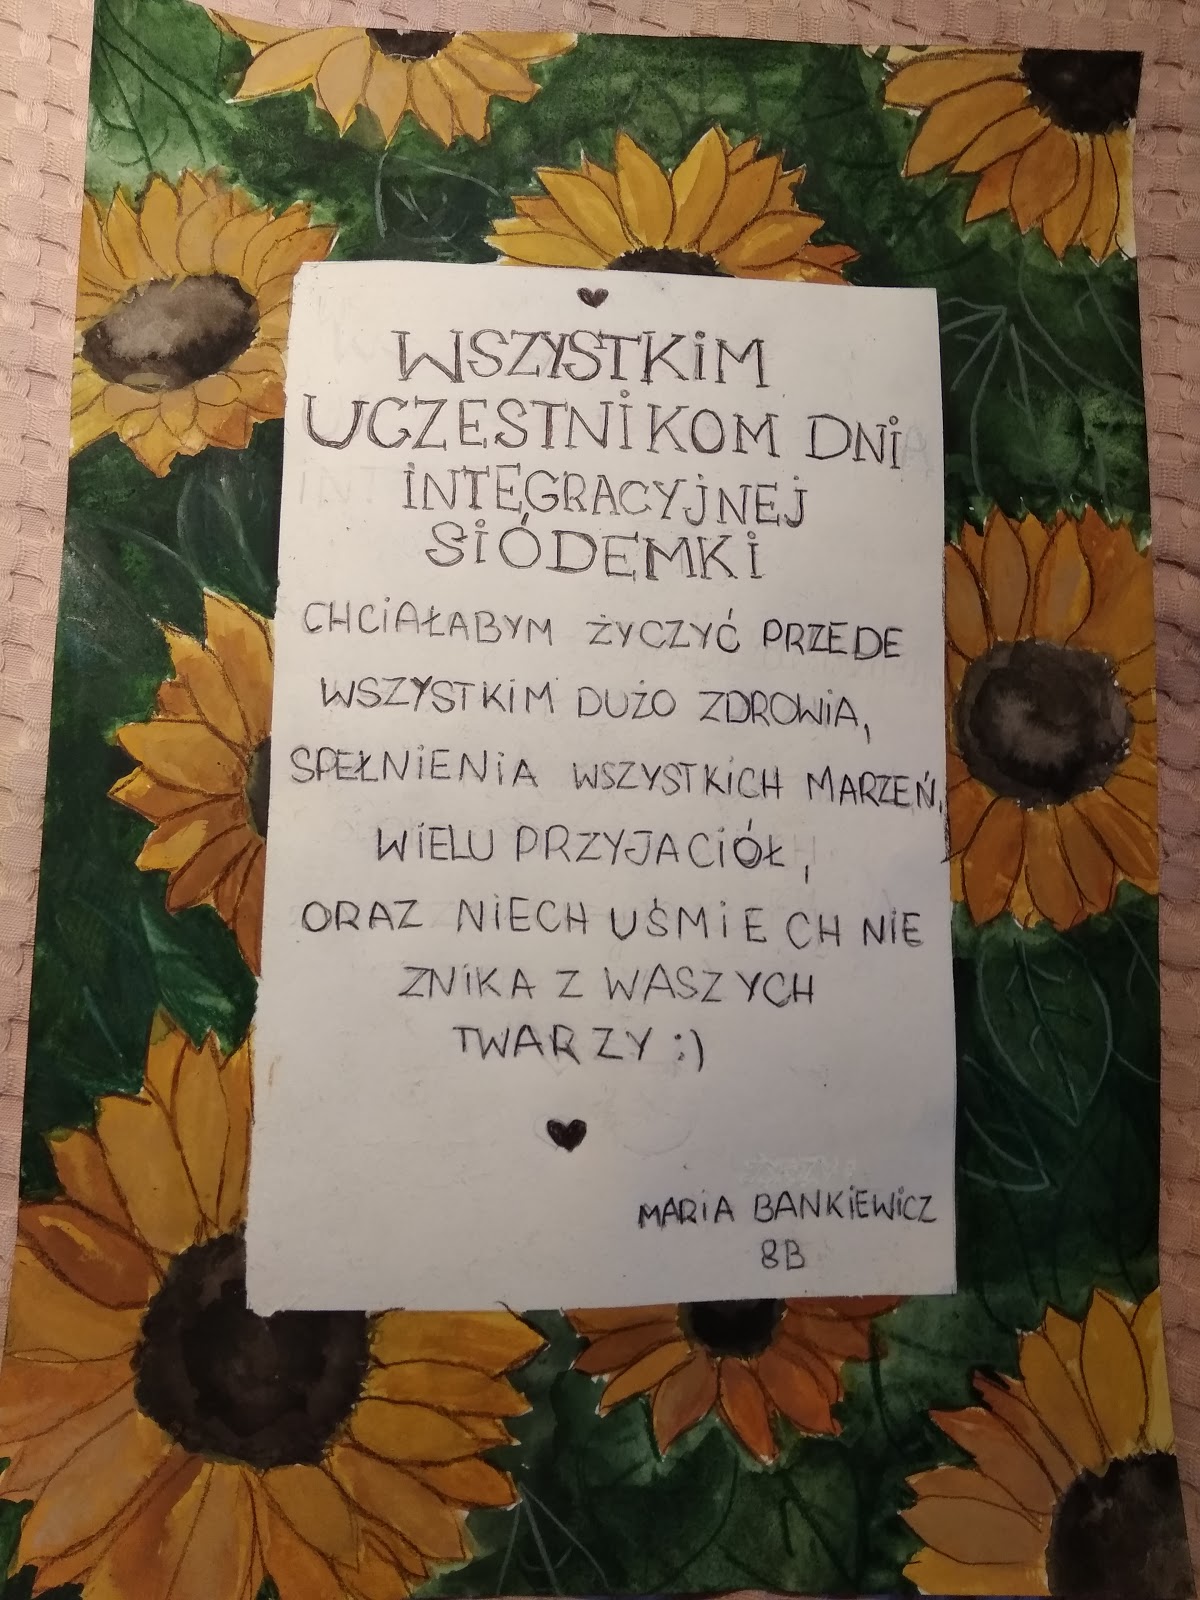 WSZYSTKiM
UCZESTNiKOM DNi
iNTEGRACYJNEJ
SiÓDEMKi
CHCiAŁABYM ŻYCZYĆ PRZEDE
WSZYSTKiM DUŻO ZDROWiA,
SPEŁNiENiA WSZYSTKiCH MARZEŃ,
WiELU PRZYJACiÓŁ,
ORAZ NiECH UŚMiECH NiE
ZNiKA Z WASZYCH
TWARZY :)
MARiA BANKiEWiCZ
8B